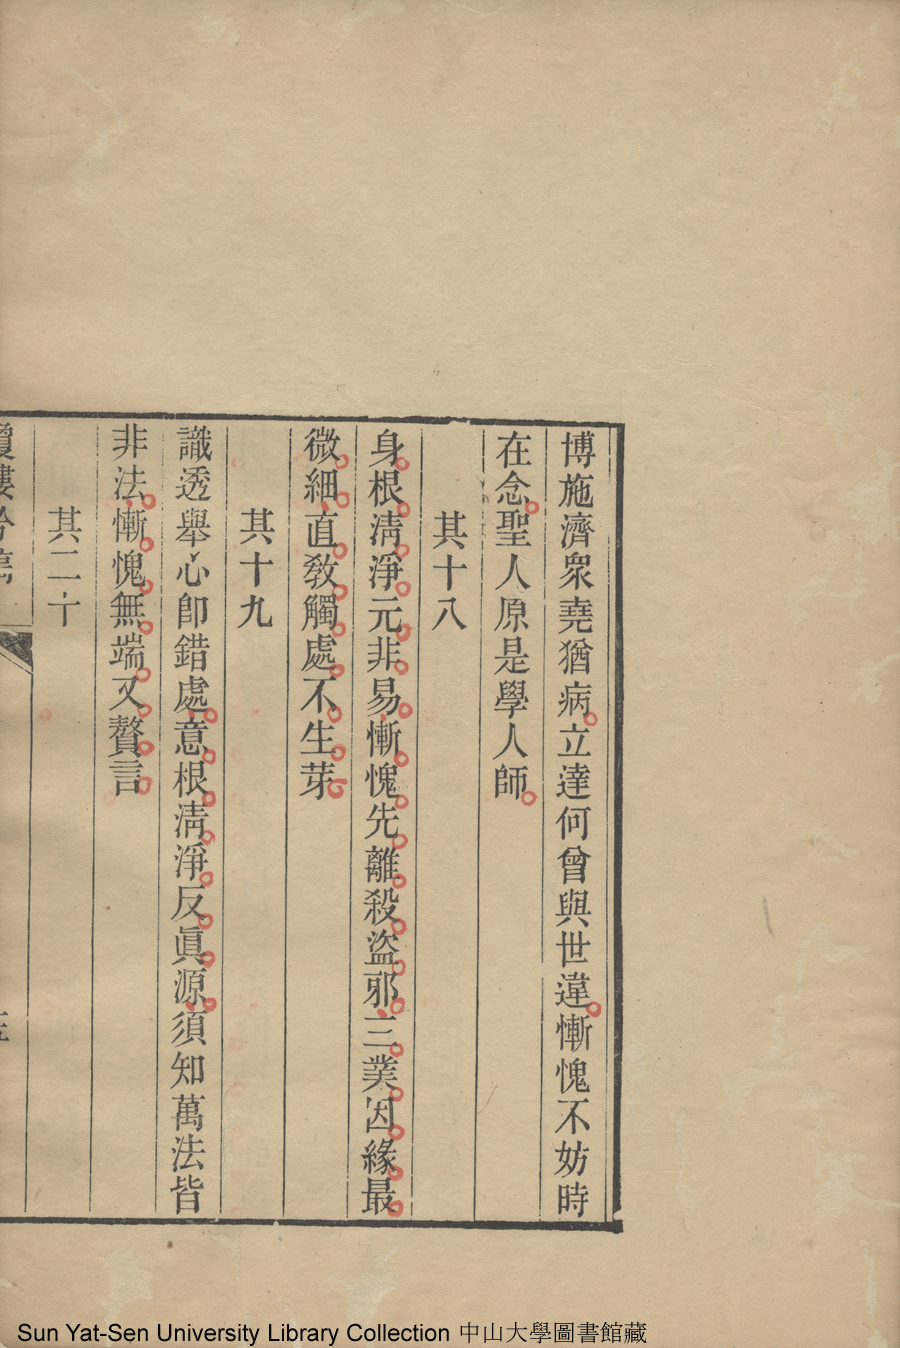 博施濟衆堯猶病立達何曾與世違慚愧不妨時
在念聖人原是學人師
其十八
身根淸淨元非易慚愧先離殺盜邪三業因緣最
微細直敎觸處不生芽
其十九
識透舉心卽錯處意根淸淨反眞源須知萬法皆
非法慚愧無端又贅言
其二十
Sun Yat-Sen University Library Collection 中山大學圖書館藏